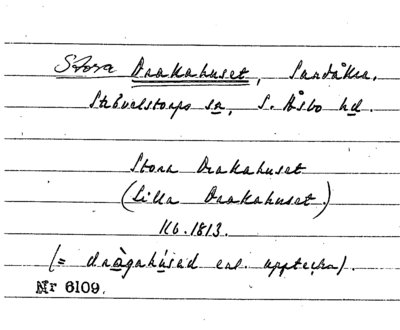 Stora Drakahuset, Sandåkra,
Strövelstorps sn, S. Åsbo hd.
Stora Drakahuset
(Lilla Drakahuset.)
Kb. 1813.
(= draagahused enl. uppteckn).
Nr 6109.